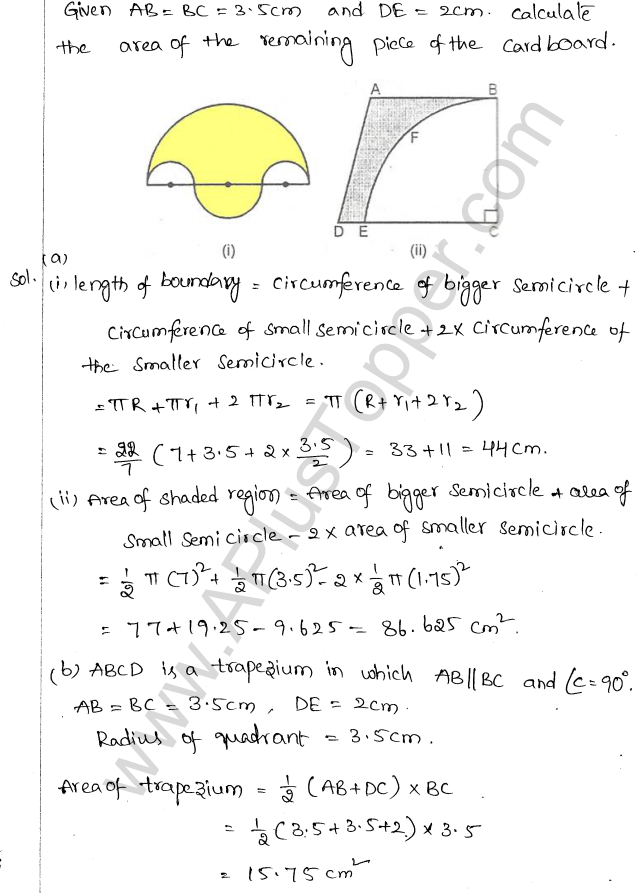 Given AB = BC = 3.5cm and DE = 2cm. Calculate
the area of the remaining piece of the cardboard.
A B
F
D E C
(i) (ii)
(a)
Sol. (i) length of boundary = circumference of bigger semicircle +
circumference of small semicircle + 2 × circumference of
the smaller semicircle.
= πR + πr₁ + 2πr₂ = π (R + r₁ + 2r₂)
= 22/7 (7 + 3.5 + 2 × 3.5/2) = 33 + 11 = 44 cm.
(ii) Area of shaded region = Area of bigger semicircle + area of
small semicircle - 2 × area of smaller semicircle.
= 1/2 π (7)² + 1/2 π (3.5)² - 2 × 1/2 π (1.75)²
= 77 + 19.25 - 9.625 = 86.625 cm².
(b) ABCD is a trapezium in which AB || BC and ∠C = 90°.
AB = BC = 3.5cm, DE = 2cm.
Radius of quadrant = 3.5cm.
Area of trapezium = 1/2 (AB + DC) × BC
= 1/2 (3.5 + 3.5 + 2) × 3.5
= 15.75 cm²
www.APlusTopper.com